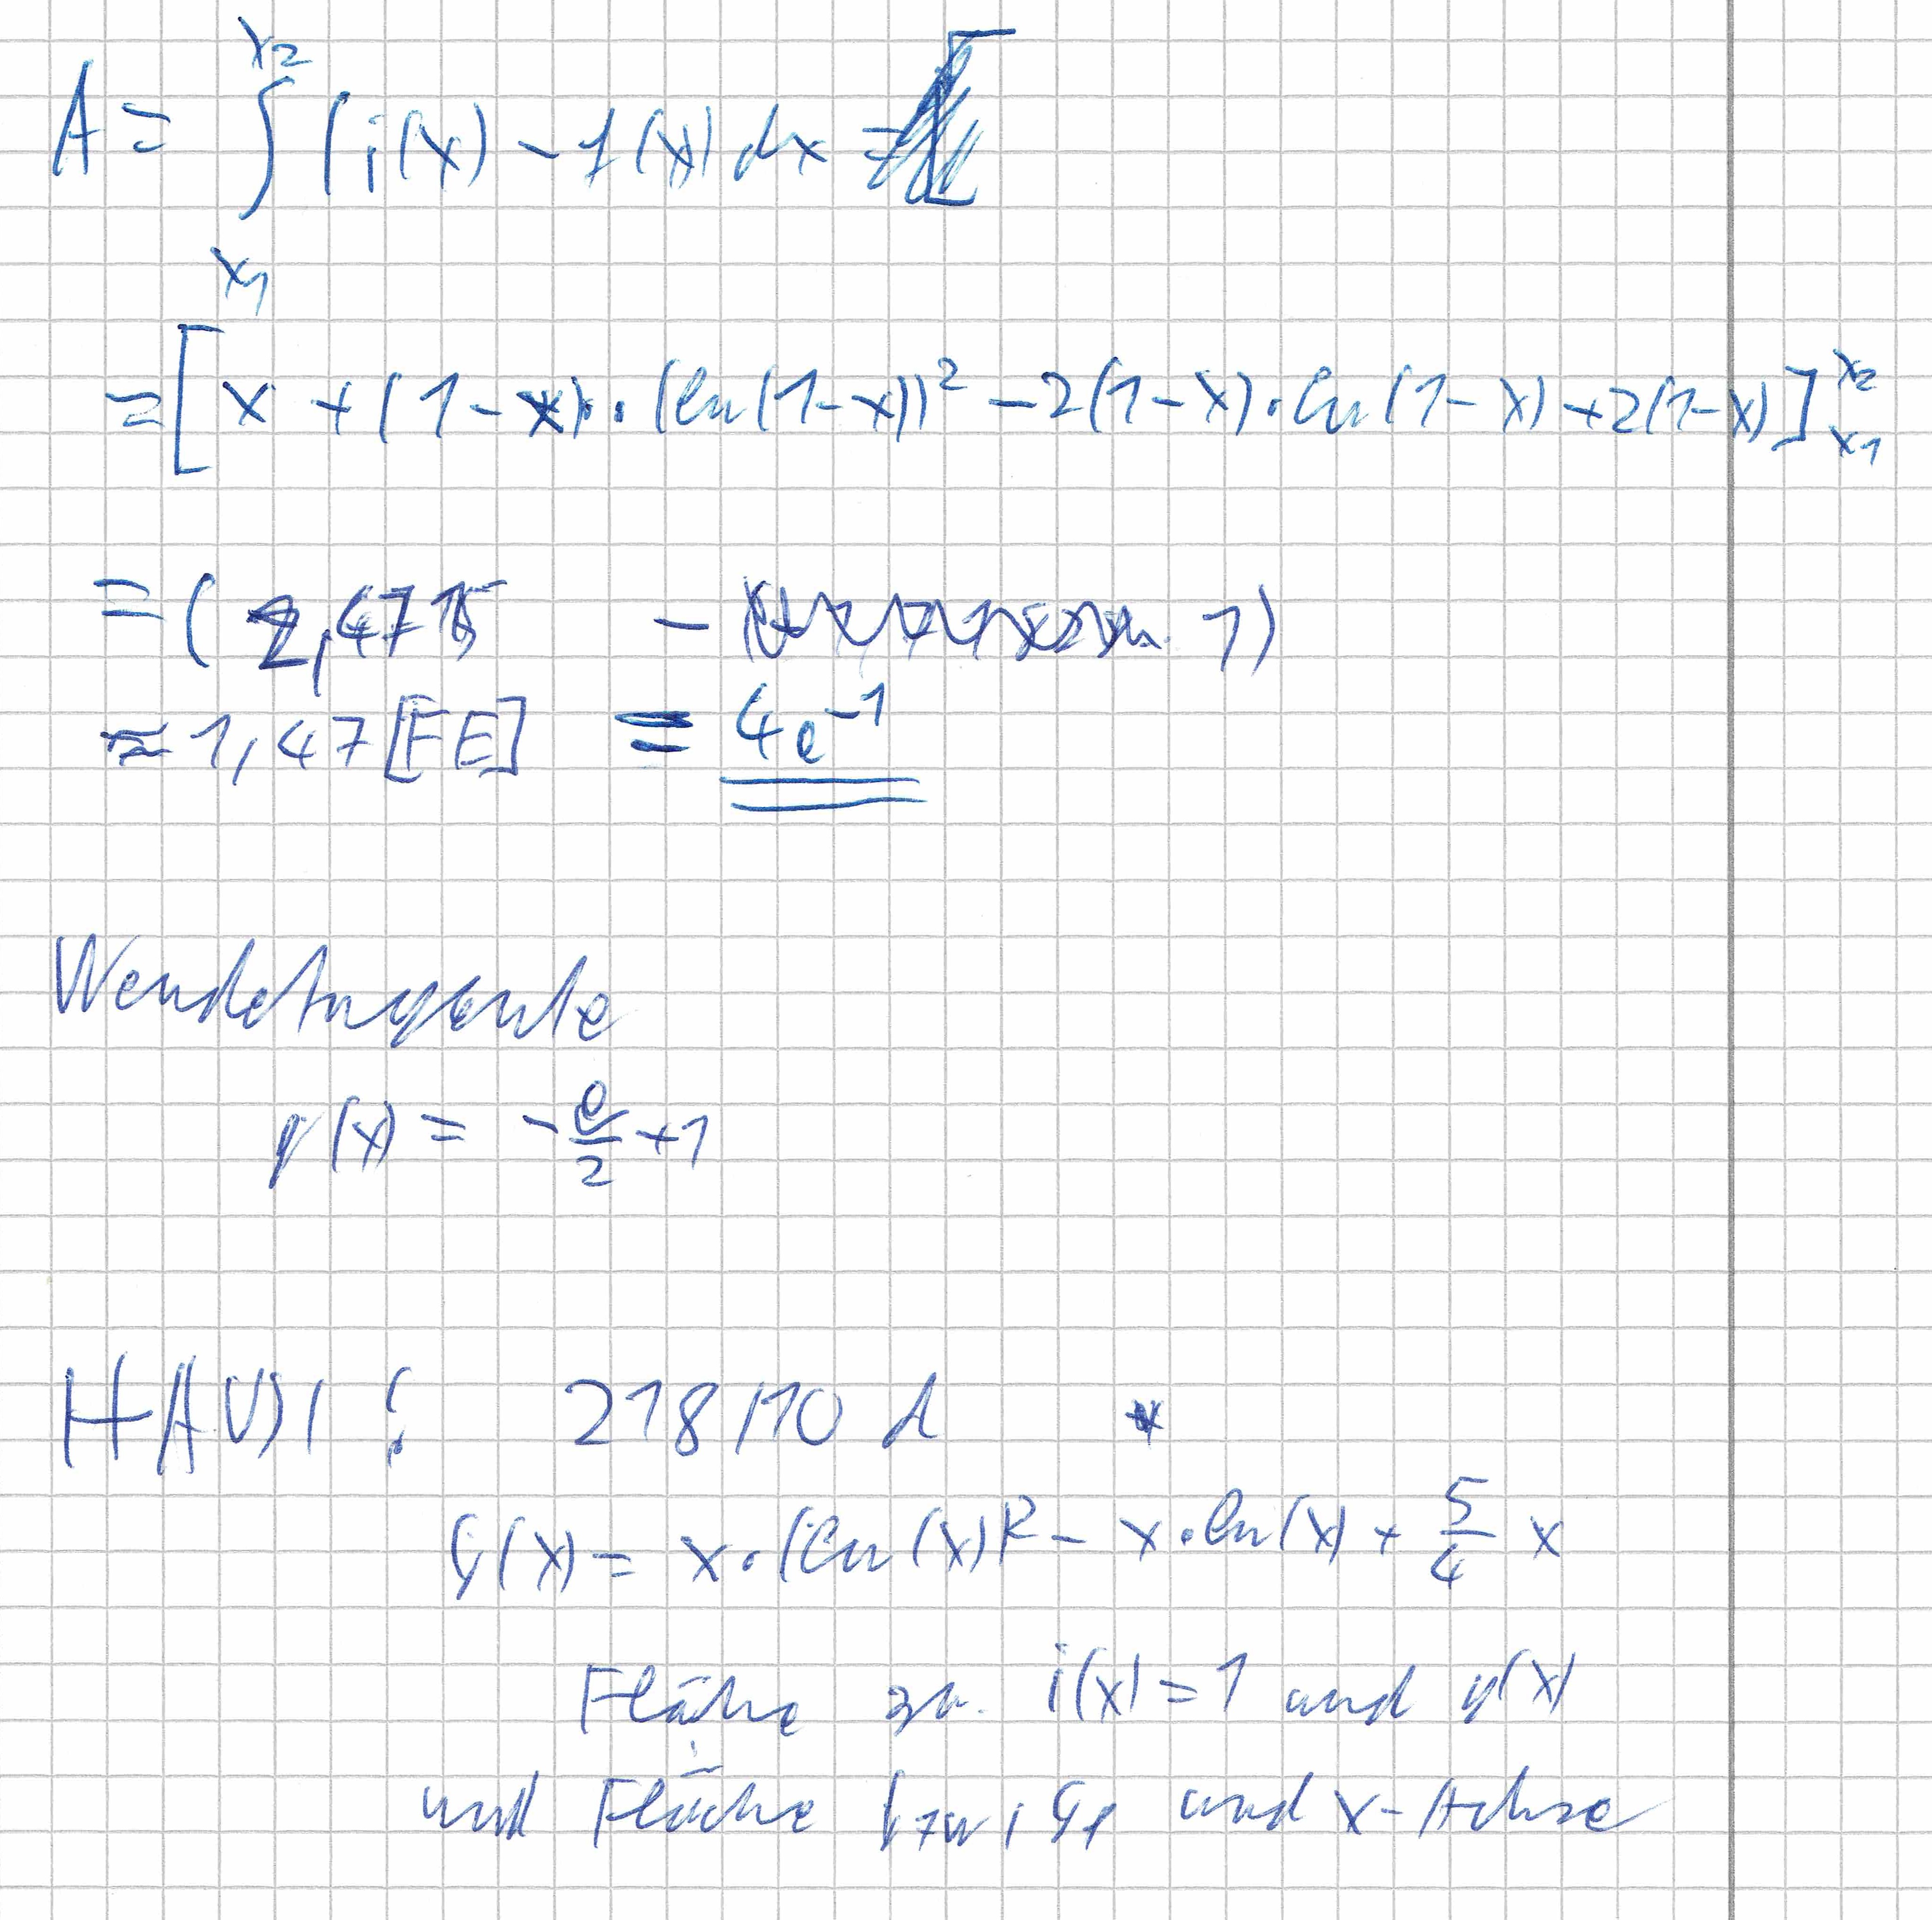 A = ∫_{x1}^{x2} (i(x) - f(x)) dx
= [x + (1-x) · (ln(1-x))² - 2(1-x) · ln(1-x) + 2(1-x)]_{x1}^{x2}
= ( 2,4715 - 1)
≈ 1,47 [FE] = 4e^{-1}
Wendetangente
y(x) = - e/2 + 1
HAUSI : 218/10 d *
G(x) = x · (ln(x))² - x · ln(x) + 5/4 x
Fläche zw. i(x) = 1 und y(x)
und Fläche bzw Gf und x-Achse